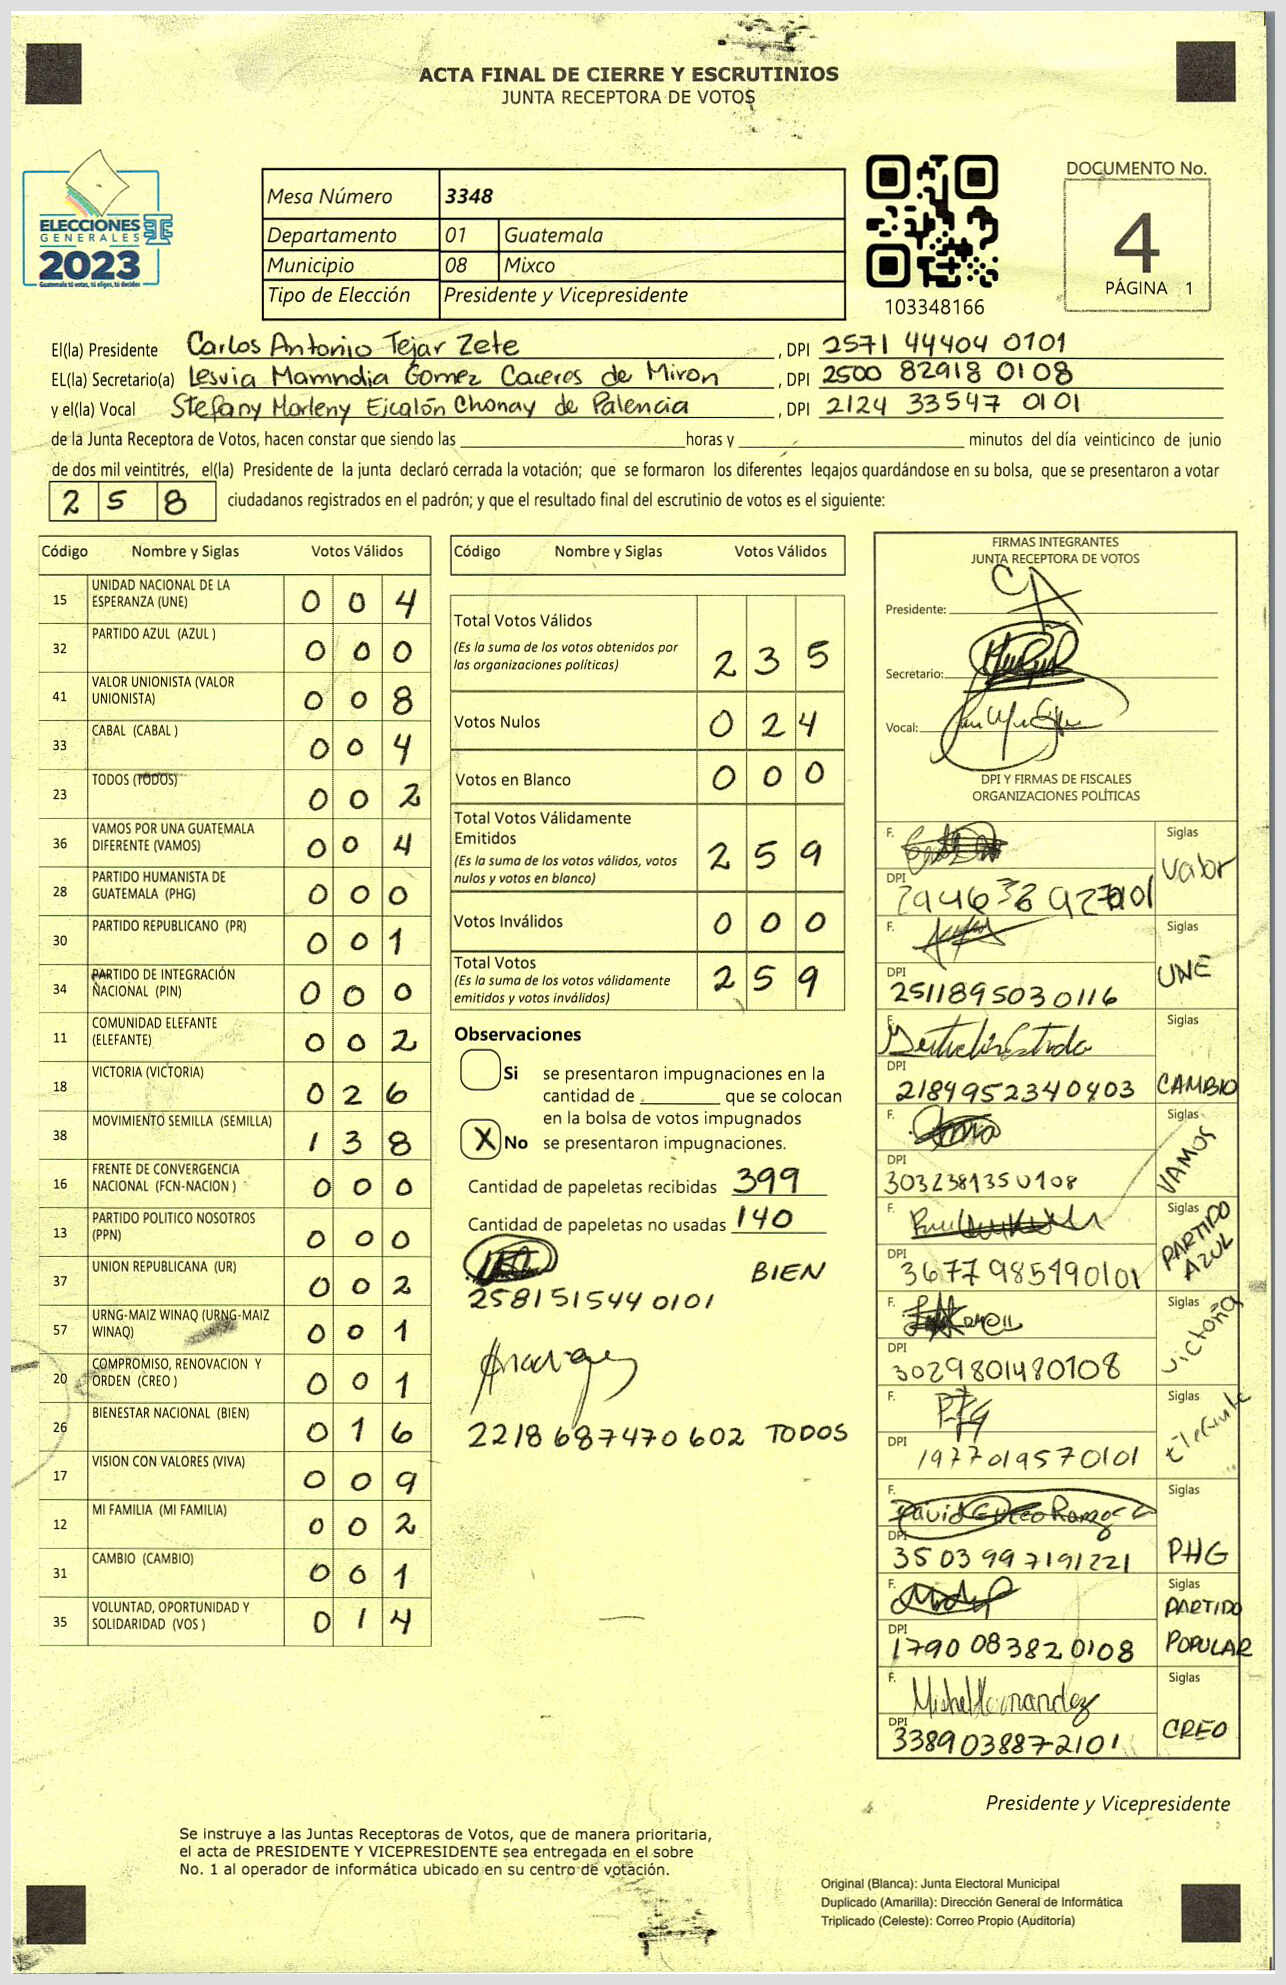 ACTA FINAL DE CIERRE Y ESCRUTINIOS
JUNTA RECEPTORA DE VOTOS
ELECCIONES
GENERALES
2023
Guatemala tú votas, tú eliges, tú decides
Mesa Número 3348
Departamento 01 Guatemala
Municipio 08 Mixco
Tipo de Elección Presidente y Vicepresidente
103348166
DOCUMENTO No.
4
PÁGINA 1
El(la) Presidente Carlos Antonio Tejar Zete, DPI 2571 44404 0101
EL(la) Secretario(a) Lesvia Mamndia Gomez Caceres de Miron, DPI 2500 82918 0108
y el(la) Vocal Stefany Marleny Ejcalón Chonay de Palencia, DPI 2124 33547 0101
de la Junta Receptora de Votos, hacen constar que siendo las ________ horas y ________ minutos del día veinticinco de junio
de dos mil veintitrés, el(la) Presidente de la junta declaró cerrada la votación; que se formaron los diferentes legajos guardándose en su bolsa, que se presentaron a votar
2 5 8 ciudadanos registrados en el padrón; y que el resultado final del escrutinio de votos es el siguiente:
Código Nombre y Siglas Votos Válidos
15 UNIDAD NACIONAL DE LA ESPERANZA (UNE) 0 0 4
32 PARTIDO AZUL (AZUL ) 0 0 0
41 VALOR UNIONISTA (VALOR UNIONISTA) 0 0 8
33 CABAL (CABAL ) 0 0 4
23 TODOS (TODOS) 0 0 2
36 VAMOS POR UNA GUATEMALA DIFERENTE (VAMOS) 0 0 4
28 PARTIDO HUMANISTA DE GUATEMALA (PHG) 0 0 0
30 PARTIDO REPUBLICANO (PR) 0 0 1
34 PARTIDO DE INTEGRACIÓN NACIONAL (PIN) 0 0 0
11 COMUNIDAD ELEFANTE (ELEFANTE) 0 0 2
18 VICTORIA (VICTORIA) 0 2 6
38 MOVIMIENTO SEMILLA (SEMILLA) 1 3 8
16 FRENTE DE CONVERGENCIA NACIONAL (FCN-NACION ) 0 0 0
13 PARTIDO POLITICO NOSOTROS (PPN) 0 0 0
37 UNION REPUBLICANA (UR) 0 0 2
57 URNG-MAIZ WINAQ (URNG-MAIZ WINAQ) 0 0 1
20 COMPROMISO, RENOVACION Y ORDEN (CREO ) 0 0 1
26 BIENESTAR NACIONAL (BIEN) 0 1 6
17 VISION CON VALORES (VIVA) 0 0 9
12 MI FAMILIA (MI FAMILIA) 0 0 2
31 CAMBIO (CAMBIO) 0 0 1
35 VOLUNTAD, OPORTUNIDAD Y SOLIDARIDAD (VOS ) 0 1 4
Código Nombre y Siglas Votos Válidos
Total Votos Válidos
(Es la suma de los votos obtenidos por las organizaciones políticas) 2 3 5
Votos Nulos 0 2 4
Votos en Blanco 0 0 0
Total Votos Válidamente Emitidos
(Es la suma de los votos válidos, votos nulos y votos en blanco) 2 5 9
Votos Inválidos 0 0 0
Total Votos
(Es la suma de los votos válidamente emitidos y votos inválidos) 2 5 9
Observaciones
Si se presentaron impugnaciones en la
cantidad de ________ que se colocan
en la bolsa de votos impugnados
X No se presentaron impugnaciones.
Cantidad de papeletas recibidas 399
Cantidad de papeletas no usadas 140
BIEN
2581515440101
2218687470602 TODOS
FIRMAS INTEGRANTES
JUNTA RECEPTORA DE VOTOS
Presidente:
Secretario:
Vocal:
DPI Y FIRMAS DE FISCALES
ORGANIZACIONES POLÍTICAS
F. Siglas Valor
DPI
F. Siglas UNE
DPI 2511895030116
F. Siglas CAMBIO
DPI 2184952340403
F. Siglas VAMOS
DPI 3032381350108
F. Siglas PARTIDO AZUL
DPI 3677985490101
F. Siglas victoria
DPI 3029801480108
F. Siglas Elefante
DPI 1977019570101
F. Siglas PHG
DPI 3503997191221
F. Siglas PARTIDO POPULAR
DPI 1790083820108
F. Mishel Hernandez Siglas CREO
DPI 3389038872101
Presidente y Vicepresidente
Se instruye a las Juntas Receptoras de Votos, que de manera prioritaria,
el acta de PRESIDENTE Y VICEPRESIDENTE sea entregada en el sobre
No. 1 al operador de informática ubicado en su centro de votación.
Original (Blanca): Junta Electoral Municipal
Duplicado (Amarilla): Dirección General de Informática
Triplicado (Celeste): Correo Propio (Auditoría)